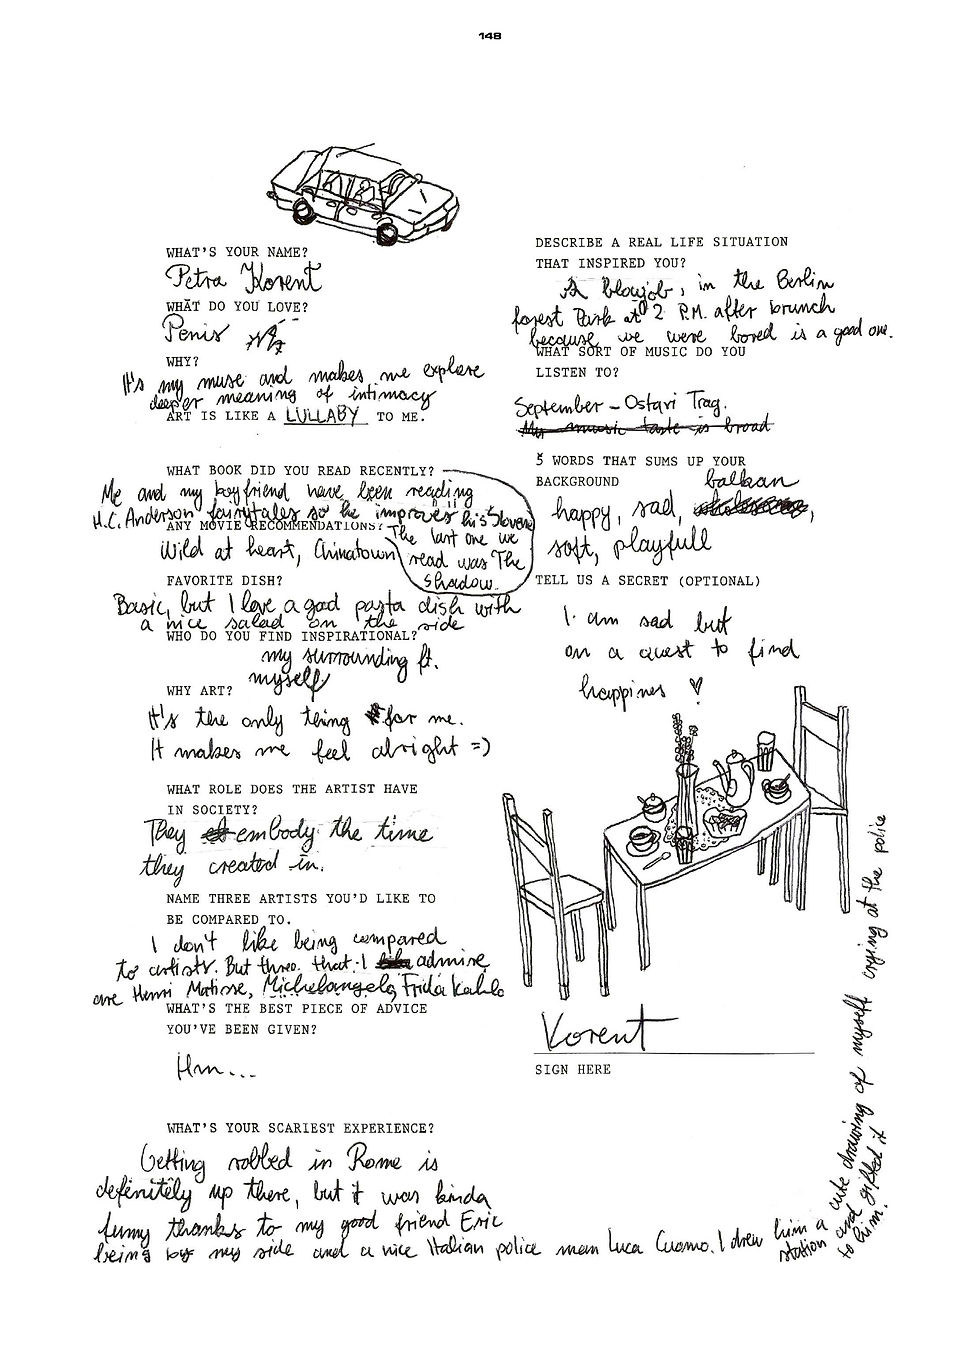 148
WHAT'S YOUR NAME?
Petra Korent
WHAT DO YOU LOVE?
Penis
WHY?
It's my muse and makes me explore
deeper meaning of intimacy
ART IS LIKE A LULLABY TO ME.
WHAT BOOK DID YOU READ RECENTLY?
Me and my boyfriend have been reading
H.C. Anderson fairytales so he improves his Slovene
The last one we
read was The
Shadow.
ANY MOVIE RECOMMENDATIONS?
Wild at heart, Chinatown
FAVORITE DISH?
Basic, but I love a good pasta dish with
a nice salad on the side
WHO DO YOU FIND INSPIRATIONAL?
my surrounding ft.
myself
WHY ART?
It's the only thing for me.
It makes me feel alright =)
WHAT ROLE DOES THE ARTIST HAVE
IN SOCIETY?
They embody the time
they created in.
NAME THREE ARTISTS YOU'D LIKE TO
BE COMPARED TO.
I don't like being compared
to artists. But three that I like admire
are Henri Matisse, Michelangelo, Frida Kahlo
WHAT'S THE BEST PIECE OF ADVICE
YOU'VE BEEN GIVEN?
Hm...
WHAT'S YOUR SCARIEST EXPERIENCE?
Getting robbed in Rome is
definitely up there, but it was kinda
funny thanks to my good friend Eric
being by my side and a nice Italian police man Luca Cuomo. I drew him a
cute drawing of myself crying at the police
station and gifted it
to him.
DESCRIBE A REAL LIFE SITUATION
THAT INSPIRED YOU?
A blowjob, in the Berlin
forest Park at 2 P.M. after brunch
because we were bored is a good one.
WHAT SORT OF MUSIC DO YOU
LISTEN TO?
September - Ostavi Trag.
My music taste is broad
5 WORDS THAT SUMS UP YOUR
BACKGROUND
happy, sad, balkan,
soft, playfull
TELL US A SECRET (OPTIONAL)
I am sad but
on a quest to find
happines
Korent
SIGN HERE